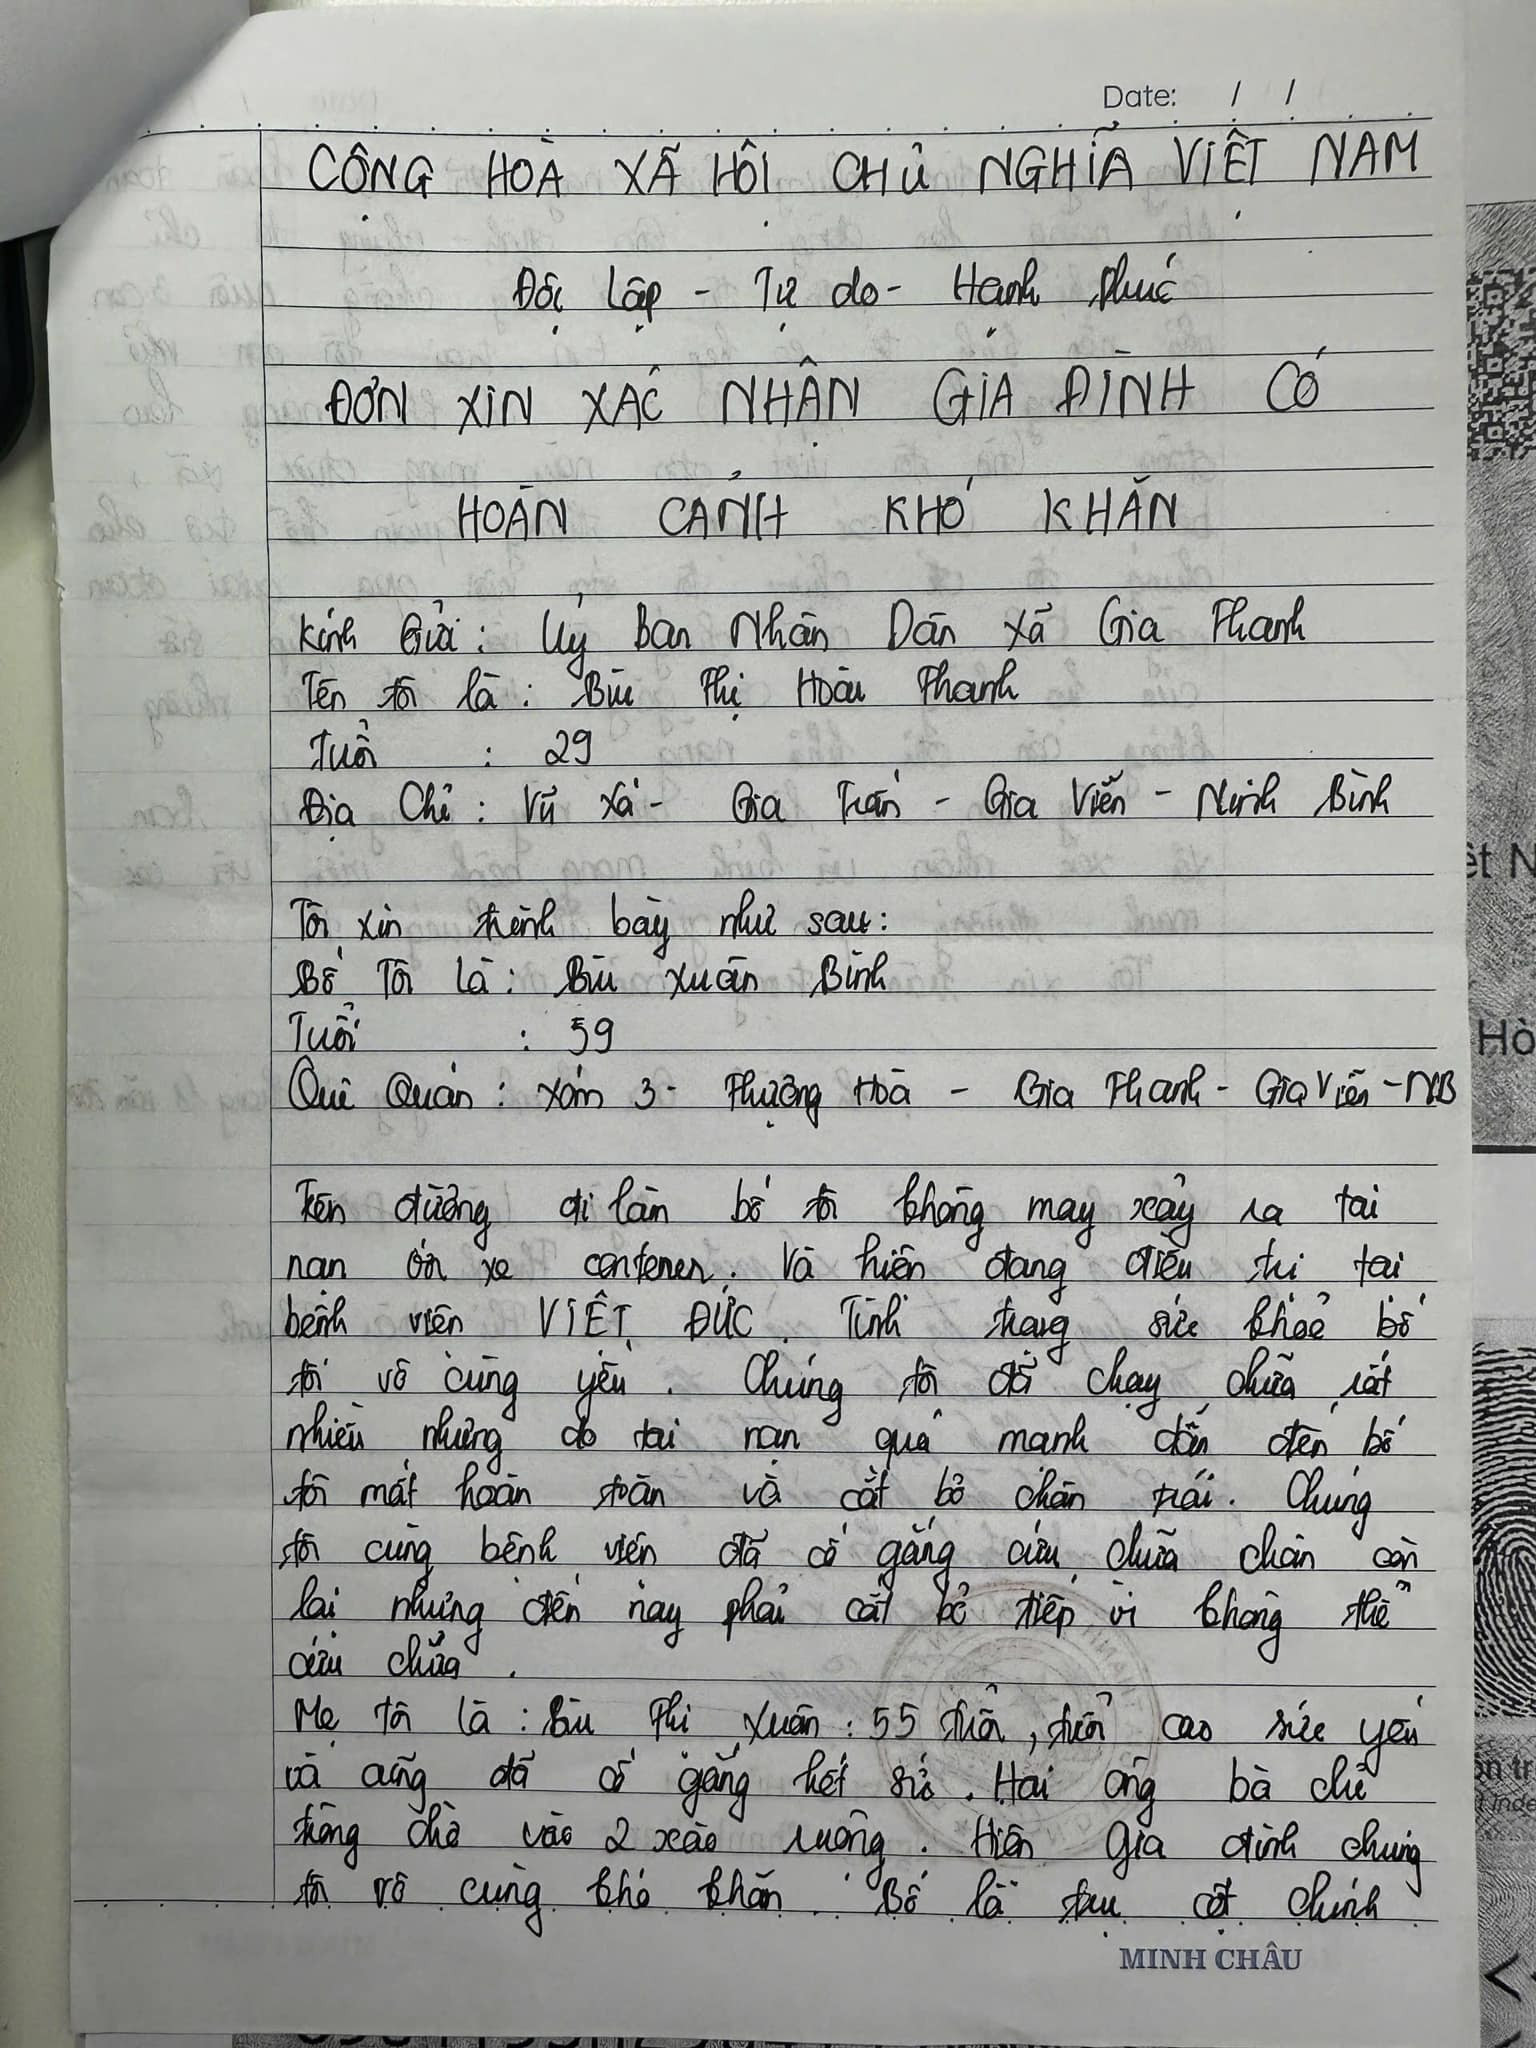 Date: / /
CỘNG HOÀ XÃ HỘI CHỦ NGHĨA VIỆT NAM
Độc lập - Tự do - Hạnh phúc
ĐƠN XIN XÁC NHẬN GIA ĐÌNH CÓ
HOÀN CẢNH KHÓ KHĂN
Kính Gửi: Uỷ Ban Nhân Dân Xã Gia Thanh
Tên tôi là: Bùi Thị Hoài Thanh
Tuổi : 29
Địa Chỉ: Vũ Xá - Gia Trấn - Gia Viễn - Ninh Bình
Tôi xin trình bày như sau:
Bố Tôi Là: Bùi Xuân Bình
Tuổi : 59
Quê Quán: Xóm 3 - Thượng Hoà - Gia Thanh - Gia Viễn - NB
Trên đường đi làm bố tôi không may xảy ra tai
nạn với xe contener. Và hiện đang điều trị tại
bệnh viện VIỆT ĐỨC. Tình trạng sức khoẻ bố
tôi vô cùng yếu. Chúng tôi đã chạy chữa rất
nhiều nhưng do tai nạn quá mạnh dẫn đến bố
tôi mất hoàn toàn và cắt bỏ chân trái. Chúng
tôi cùng bệnh viện đã cố gắng cứu chữa chân còn
lại nhưng đến nay phải cắt bỏ tiếp vì không thể
cứu chữa.
Mẹ tôi là: Bùi Thị Xuân: 55 tuổi, tuổi cao sức yếu
và cũng đã cố gắng hết sức. Hai ông bà chỉ
trông chờ vào 2 xào ruộng. Hiện Gia đình chúng
tôi vô cùng khó khăn. Bố là trụ cột chính
MINH CHÂU